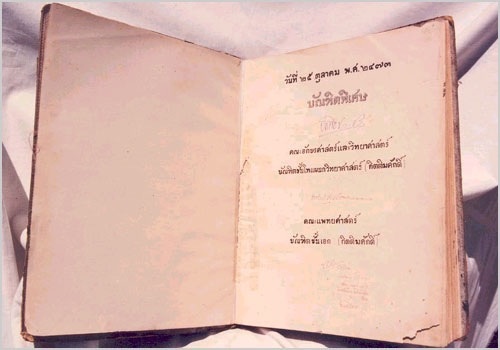 วันที่ ๒๕ ตุลาคม พ.ศ. ๒๔๗๓
บัณฑิตพิเศษ
คณะอักษรศาสตร์และวิทยาศาสตร์
บัณฑิตชั้นโทแผนกวิทยาศาสตร์ (กิตติมศักดิ์)
คณะแพทยศาสตร์
บัณฑิตชั้นเอก (กิตติมศักดิ์)